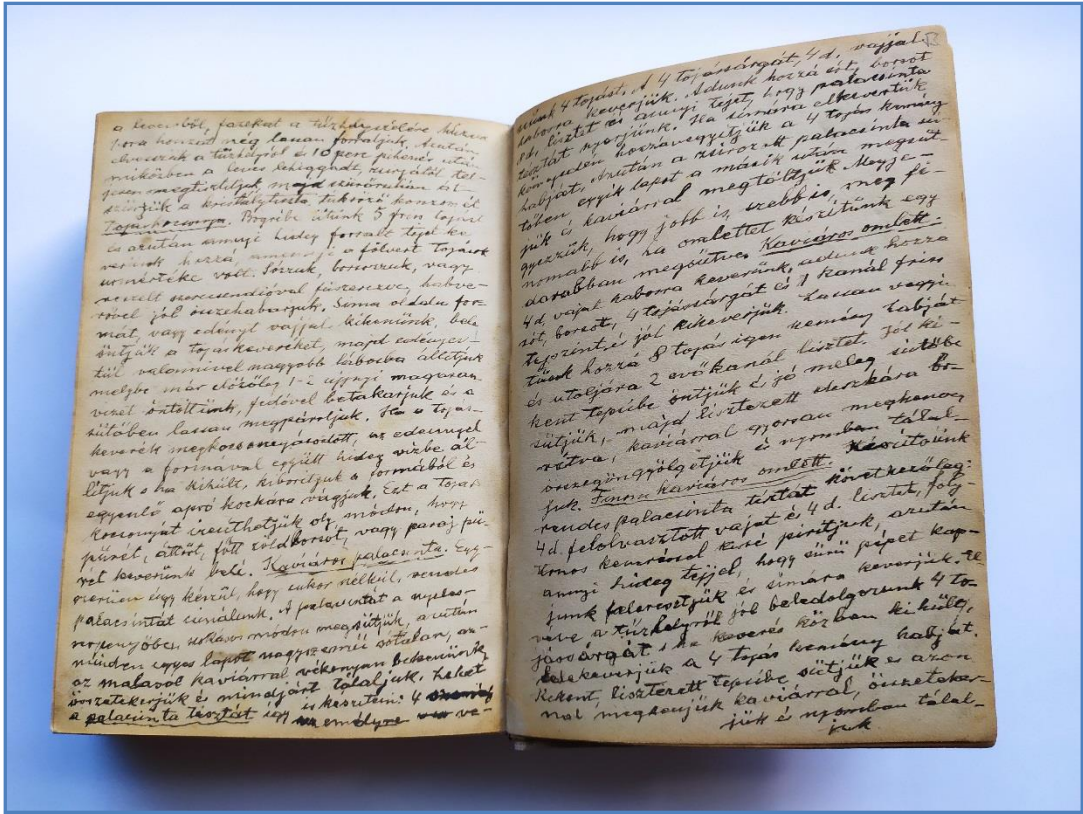 a levesből, fazekat a tűzhely szélére húzva
1 óra hosszat még lassan forraljuk. Azután
elvesszük a tűzhelyről és 10 perc pihenés után
miközben a leves lehiggadt, zsírjától tel-
jesen megtisztítjuk, majd szűrőruhán át-
szűrjük a kristálytiszta, tükröző konzomét.
Tojáskocsonya. Bögrébe ütünk 5 friss tojást
és azután annyi hideg forralt tejet ke
verünk hozzá, amennyi a fölvert tojások
űrmértéke volt. Sózzuk, borsozzuk, vagy
reszelt szerecsendióval fűszerezve, habve-
rővel jól összehabarjuk. Sima oldalu for-
mát, vagy edényt vajjal kikenünk, bele
öntjük a tojáskeveréket, majd edényes-
tül valamivel nagyobb lábosba állítjuk
melybe már előzőleg 1-2 ujjnyi magasan
vizet öntöttünk, fedővel betakarjuk és a
sütőben lassan megpároljuk. Ha a tojás-
keverék megkocsonyásodott, az edénnyel
vagy a formával együtt hideg vízbe ál-
lítjuk s ha kihült, kiborítjuk a formából és
egyenlő apró kockára vágjuk. Ezt a tojás
kocsonyát izesíthetjük oly módon, hogy
püréet, áttört, főtt zöldborsót, vagy paraj pü-
rét keverünk belé. Kaviáros palacsinta. Egy-
szerüen úgy készül, hogy cukor nélkül, rendes
palacsintát csinálunk. A palacsintát a nyeles-
serpenyőben szokásos módon megsütjük, azután
minden egyes lapot nagyszemü sótalan, az-
az malosol kaviárral vékonyan bekenünk,
összetekerjük és mindjárt tálaljuk. Lehet
a palacsinta tésztát így is készíteni: 4
személyre ve-
szünk 4 tojást. A 4 tojássárgát, 4 d. vajjal
habosra keverjük. Adunk hozzá sót, borsot
8 d. lisztet és annyi tejet, hogy palacsinta
tésztát nyerjünk. Ha simára elkevertük,
könnyedén hozzávegyítjük a 4 tojás kemény
habját, Azután a zsírozott palacsinta sü-
tőben egyik lapot a másik után megsüt-
jük és kaviárral megtöltjük. Megje-
gyezzük, hogy jobb is, szebb is, meg fi-
nomabb is, ha omlettet készítünk egy
darabban megsütve. Kaviáros omlett.
4 d. vajat habosra keverünk, adunk hozzá
sót, borsot, 4 tojássárgát és 1 kanál friss
tejszínt, és jól kikeverjük. Lassan vegyí-
tünk hozzá 8 tojás igen kemény habját
és utoljára 2 evőkanál lisztet. Jól ki-
kent tepsibe öntjük és jó meleg sütőbe
sütjük, majd lisztezett deszkára bo-
rítva, kaviárral gyorsan megkenve
összegöngyölgetjük és nyomban tálal-
juk. Finom kaviáros omlett. Készítsünk
rendes palacsinta tésztát következőleg:
4 d. felolvasztott vajat és 4 d. lisztet, foly-
tonos keveréssel kissé pirítjuk, azután
annyi hideg tejjel, hogy sürü pépet kap-
junk feleresztjük és simára keverjük. El
véve a tűzhelyről jól beledolgozunk 4 to-
jássárgát s ha keverés közben kihült,
belekeverjük a 4 tojás kemény habját.
Kikent, lisztezett tepsibe sütjük és azon
mód megkenjük kaviárral, összeteker-
jük és nyomban tálal-
juk